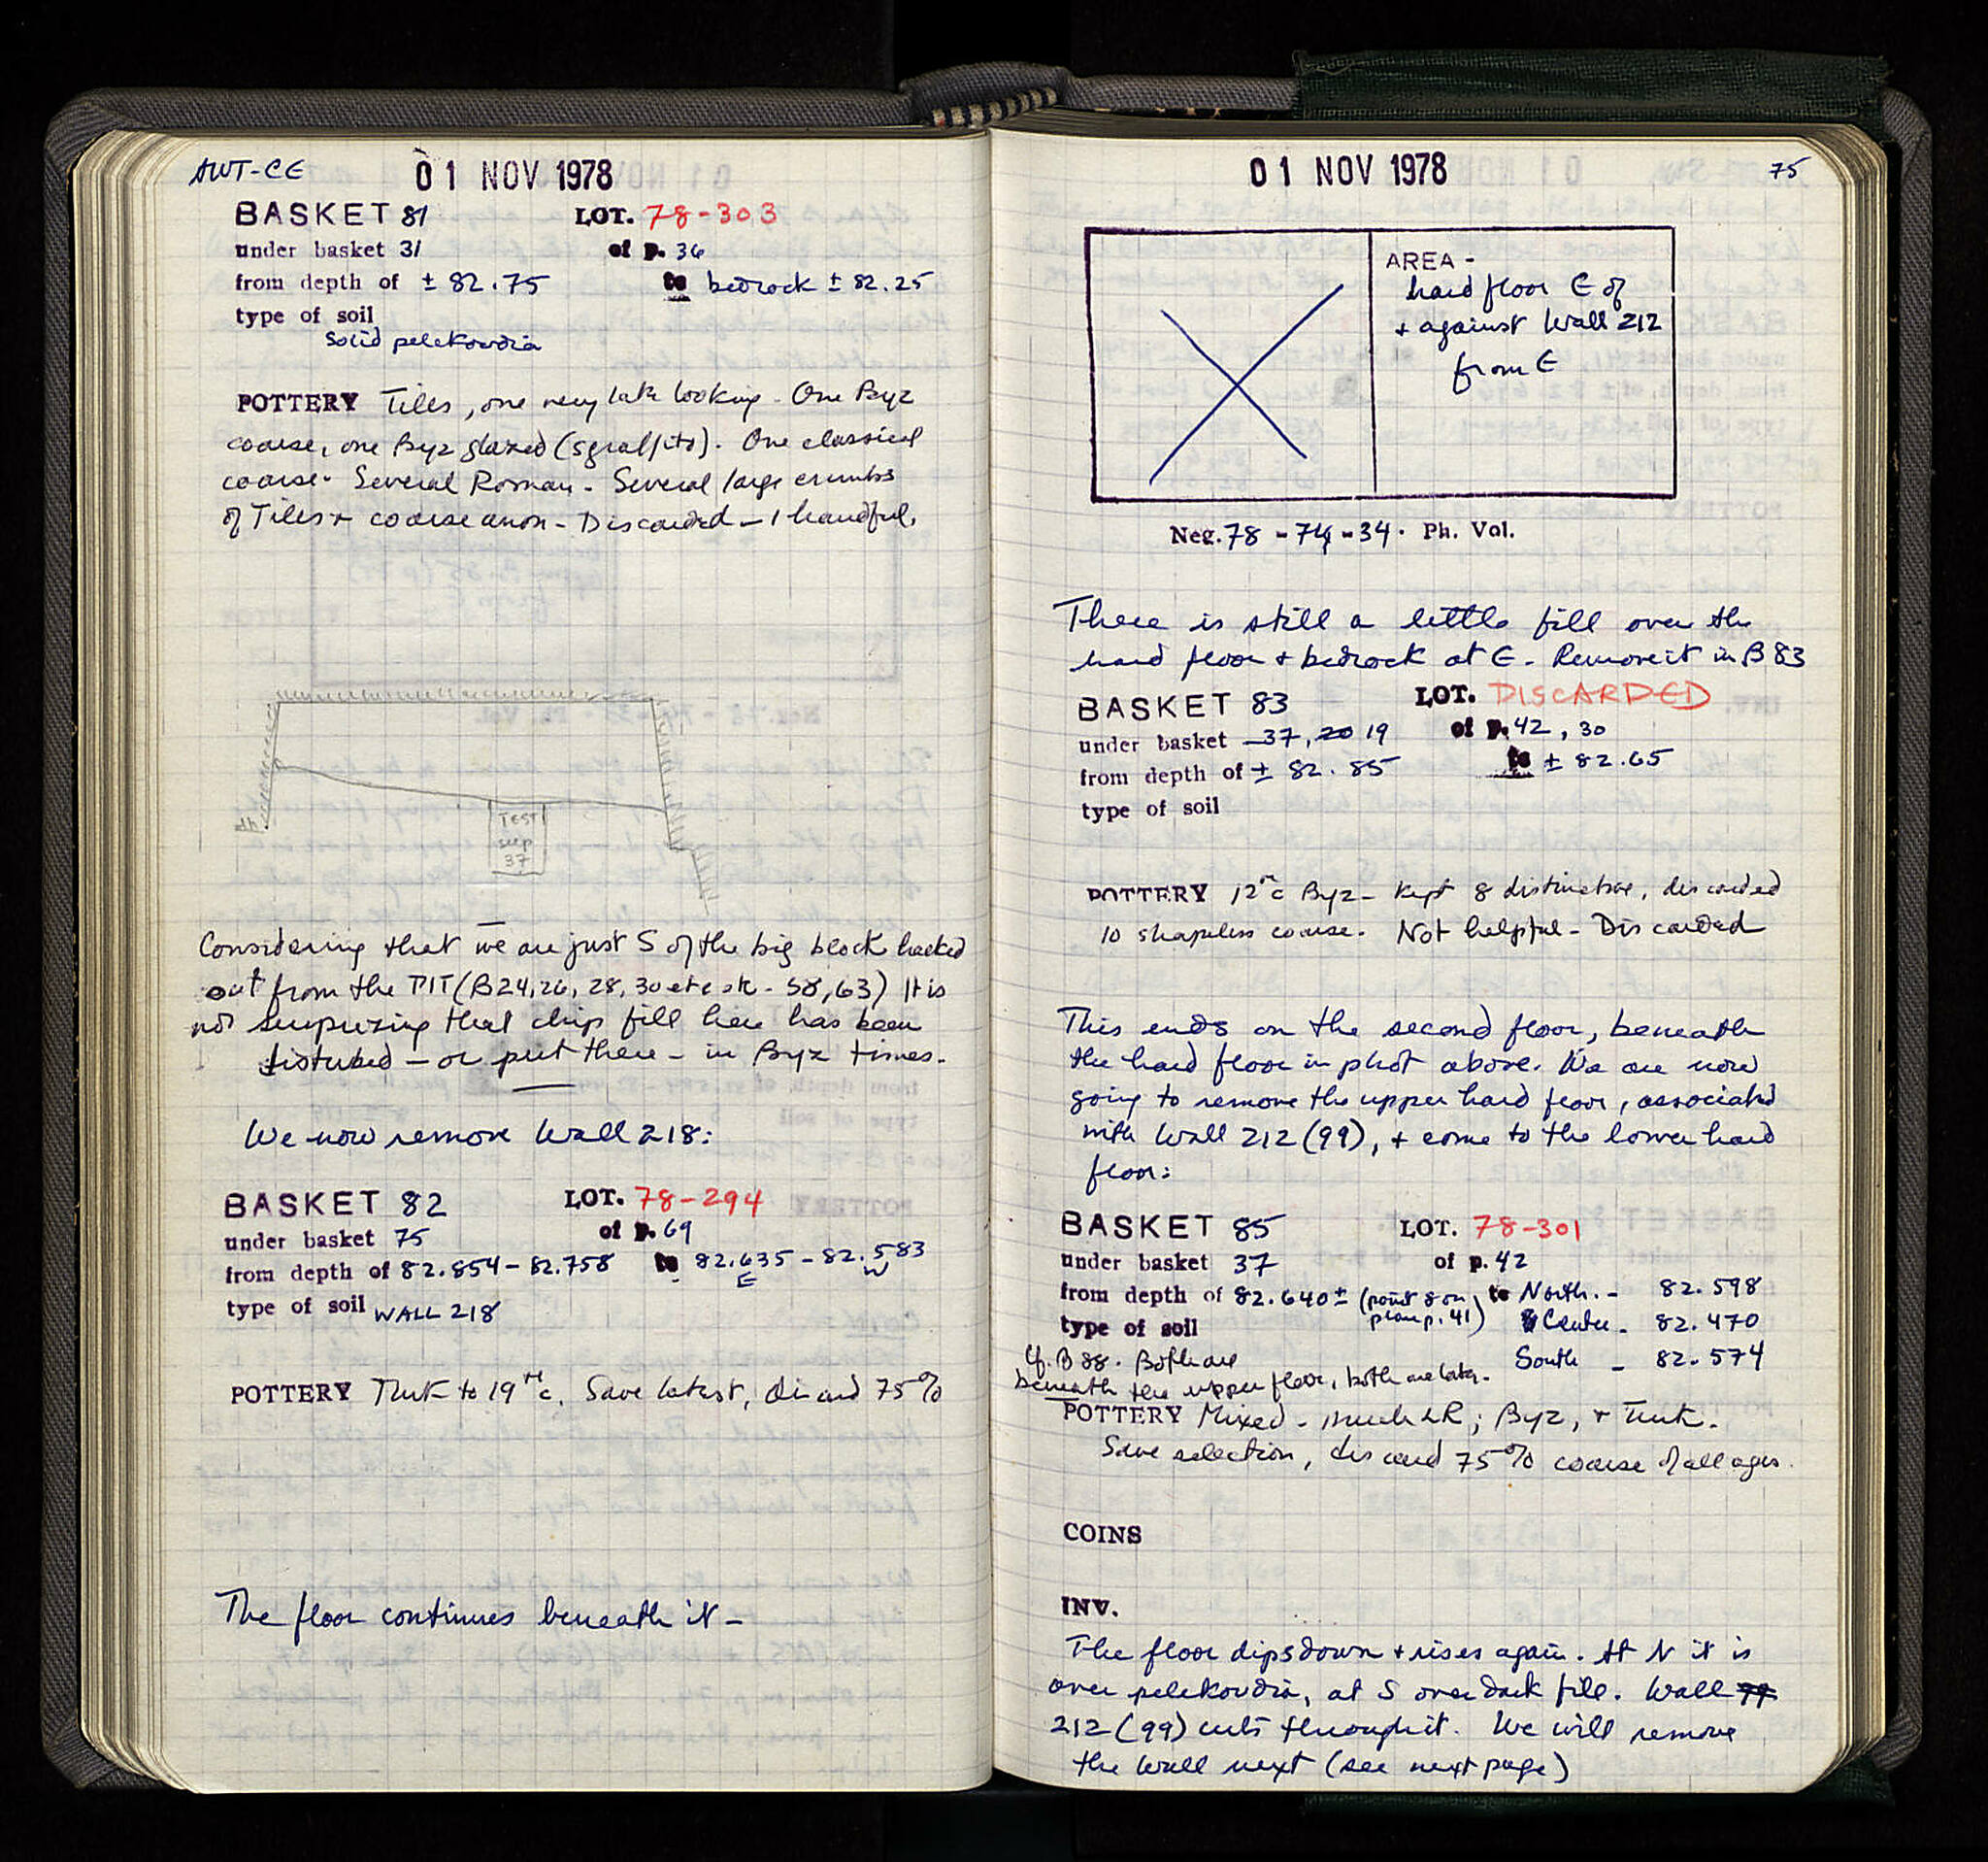 AWT-CE
01 NOV 1978
BASKET 81 LOT. 78-303
under basket 31 of p. 36
from depth of ± 82.75 to bedrock ± 82.25
type of soil
solid pelekoudia
POTTERY Tiles, one very late looking. One Byz
coarse, one Byz glazed (sgraffito). One classical
coarse. Several Roman. Several large crumbs
of Tiles + coarse anon - Discarded - 1 handful.
TEST
seep
37
Considering that we are just S of the big block hacked
out from the PIT (B24, 26, 28, 30 etc - 58, 63) It is
not surprising that chip fill here has been
disturbed - or put there - in Byz times.
We now remove Wall 218:
BASKET 82 LOT. 78-294
under basket 75 of p. 69
from depth of 82.854 - 82.758 to 82.635 - 82.583
E W
type of soil WALL 218
POTTERY Turk to 19th c. Save latest, discard 75%
The floor continues beneath it -
01 NOV 1978
75
AREA -
hard floor E of
+ against Wall 212
from E
Neg. 78 - 74 - 34. Ph. Vol.
There is still a little fill over the
hard floor + bedrock at E. Remove it in B 83
BASKET 83 LOT. DISCARDED
under basket 37, 20 19 of p. 42, 30
from depth of ± 82.85 to ± 82.65
type of soil
POTTERY 12th c Byz - Kept 8 distinctive, discarded
10 shapeless coarse. Not helpful - Discarded
This ends on the second floor, beneath
the hard floor in phot above. We are now
going to remove the upper hard floor, associated
with Wall 212 (99), + come to the lower hard
floor:
BASKET 85 LOT. 78-301
under basket 37 of p. 42
from depth of 82.640 ± (point 8 on to North. - 82.598
plan p. 41)
type of soil Center - 82.470
cf. B 88. Both are South - 82.574
beneath the upper floor, both are late.
POTTERY Mixed - much LR; Byz, + Turk.
Save selection, discard 75% coarse of all ages.
COINS
INV.
The floor dips down + rises again. At N it is
over pelekoudia, at S over dark fill. Wall 99
212 (99) cuts through it. We will remove
the Wall next (see next page)